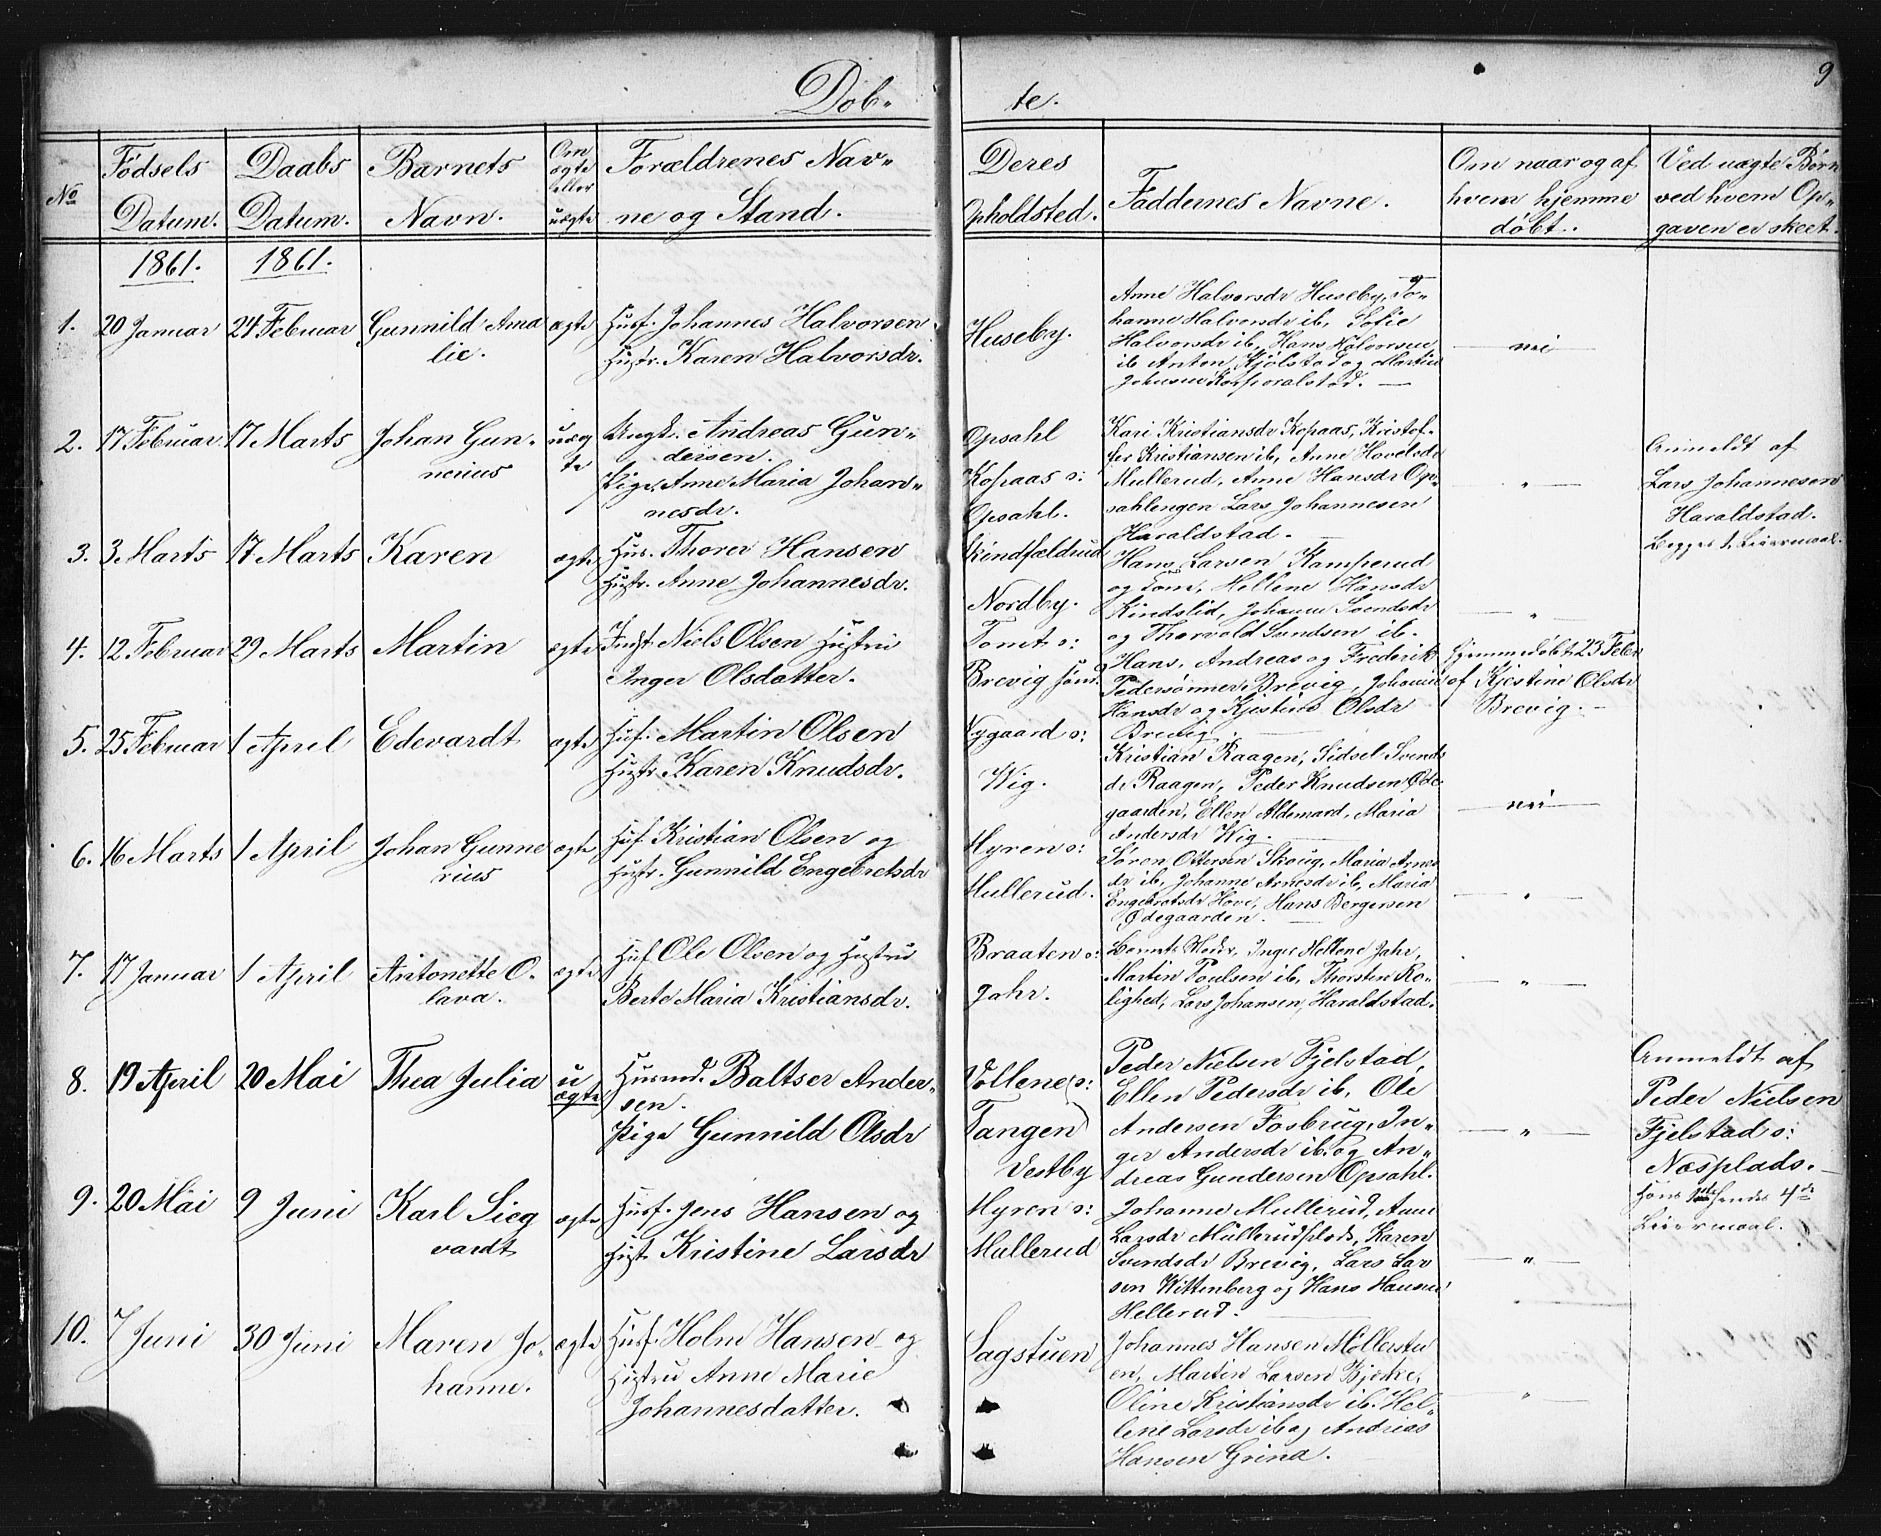 Døb- te. 9
No Fødsels Datum. Daabs Datum. Barnets Navn. Om ægte eller uægte Forældrenes Nav- ne og Stand. Deres Opholdsted. Faddernes Navne. Om naar og af hvem hjemme døbt. Ved uægte Børn ved hvem Op- gaven er skeet.
1861. 1861.
1. 20 Januar 24 Februar Gunnild Ama
lie.
ægte
Husf. Johannes Halvorsen
Hustr. Karen Halvorsdr.
Huseby.
Anne Halvorsdr Huseby, Jo-
hanne Halvorsdr ib, Sofie
Halvorsdr ib, Hans Halvorsen
ib Anton Kjølstad og Martin
Johnsen Korporalstad. —
— nei —
2. 17 Februar 17 Marts Johan Gun-
nerius
uæg
te
Ungk. Andreas Gun-
dersen.
Pige. Anne Maria Johan-
nesdr.
Opsahl
Kopaas o:
Opsahl.
Kari Kristiansdr Kopaas, Kristof-
fer Kristiansen ib, Anne Hovelsdr
Mullerud, Anne Hansdr Op-
sahlengen Lars Johannesen
Haraldstad. —
— " —
Anmeldt af
Lars Johannesen
Haraldstad.
Begges 1. Leiermaal.
3. 3 Marts 17 Marts Karen ægte
Hus. Thorer Hansen
Hustr. Anne Johannesdr.
Kindfældrud
Nordby.
Hans Larsen Kamperud
og Tom, Hellene Hansdr
Kindslid, Johanne Svendsdr
og Thorvald Sundsen ib.
— " —
4. 12 Februar 29 Marts Martin ægte
Indst. Niels Olsen Hustru
Inger Olsdatter.
Tomt o:
Brevig søndr.
Hans, Andreas og Frederik
Pedersønner Brevig, Johanne
Hansdr og Kjestine Olsdr
Brevig.
Hjemmedøbt 23 Febr
af Kjestine Olsdr
Brevig. —
5. 25 Februar 1 April Edevardt ægte
Husf. Martin Olsen
Hustr. Karen Knudsdr.
Nygaard o:
Wig.
Kristian Raagen, Sidsel Svends
dr Raagen, Peder Knudsen Øde
gaarden, Ellen Aldemard, Maria
Andersdr Wig.
— nei —
6. 16 Marts 1 April Johan Gunne
rius
ægte
Husf. Kristian Olsen og
Hustr. Gunnild Engebretsdr
Myren o:
Mullerud.
Søren Ottersen Skoug, Maria Arnes
dr ib, Johanne Arnesdr ib, Maria
Engebretsdr Hove, Hans Bergersen
Ødegaarden. —
— " —
7. 17 Januar 1 April Antonette O-
lava.
ægte
Husf Ole Olsen og Hustru
Berte Maria Kristiansdr.
Braaten o:
Jahr.
Barnets Moder, Inger Hellene Jahr,
Martin Poulsen ib, Thorsten Ro-
lighed, Lars Johansen, Haraldstad.
— " —
8. 19 April 20 Mai Thea Julia u
ægte
Husmd. Baltser Ander-
sen.
Pige Gunnild Olsdr
Vollene (o:
Tangen)
Vestby
Peder Nielsen Fjelstad,
Ellen Pedersdr ib, Ole
Andersen Fosbrug, In-
ger Andersdr ib. og An-
dreas Gundersen Opsahl.
— " —
Anmeldt af
Peder Nielsen
Fjelstad o:
Næsplads. —
Hans 1ste Hendes 4de
Leiermaal.
9. 20 Mai 9 Juni Karl Sieg
vardt
ægte
Husf. Jens Hansen og
Hust. Kristine Larsdr
Myren o:
Mullerud
Johanne Mullerud, Anne
Larsdr Mullerudplads, Karen
Svendsdr Brevig, Lars Lar
sen Wittenberg og Hans Hansen
Hellerud.
— " —
10. 7 Juni 30 Juni Maren Jo-
hanne.
ægte
Husf. Holm Hansen og
Hustru Anne Marie
Johannesdatter.
Sagstuen
Johannes Hansen Møllerstu
en, Martin Larsen Bjerke,
Oline Kristiansdr ib. Hel-
lene Larsdr ib og Andreas
Hansen Grina.
— " —